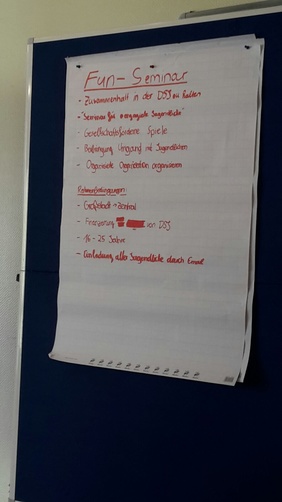 Fun-Seminar
- Zusammenhalt in der DSJ zu fördern
- "Seminar für engagierte Jugendliche"
- Gesellschaftsfördernde Spiele
- Umgang mit Jugendlichen
- organisieren
Rahmenbedingungen:
- Großstadt → zentral
- Finanzierung von DSJ
- 16 - 25 Jahre
- Einladung aller Jugendliche durch Email